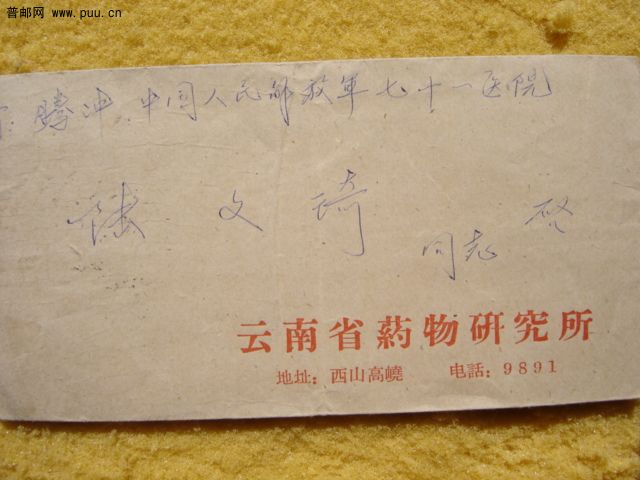 普邮网 www.puu.cn
腾冲 中国人民解放軍七十一医院
张文琦 同志 啓
云南省药物研究所
地址：西山高嶢 电話：9891